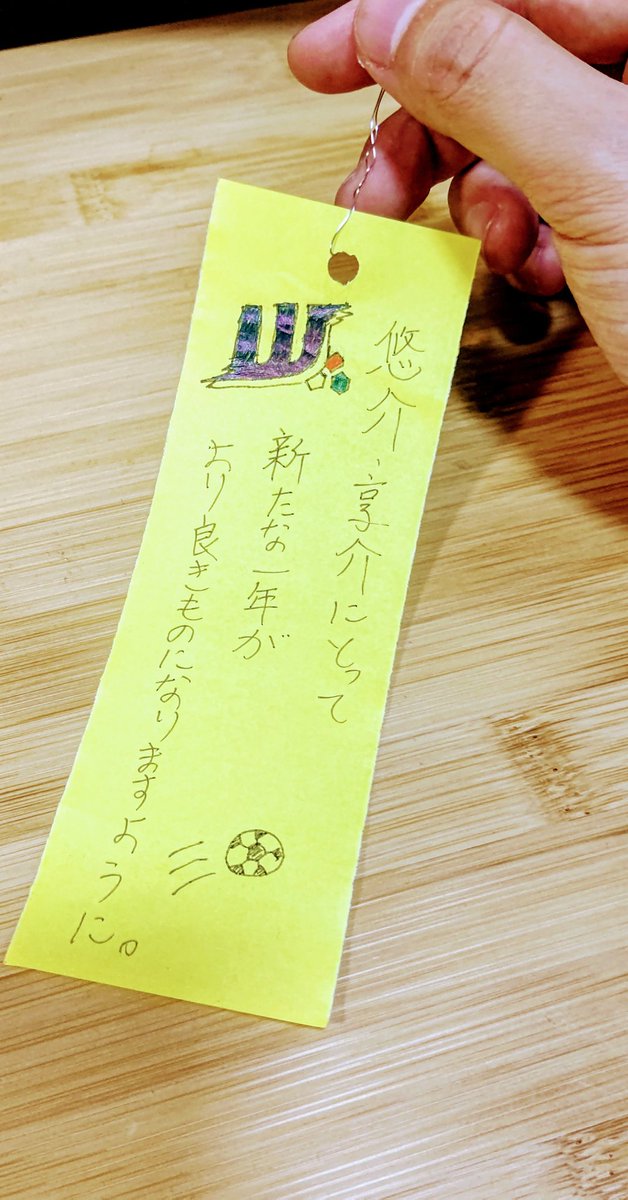 悠介、享介にとって
新たな一年が
より良きものになりますように。